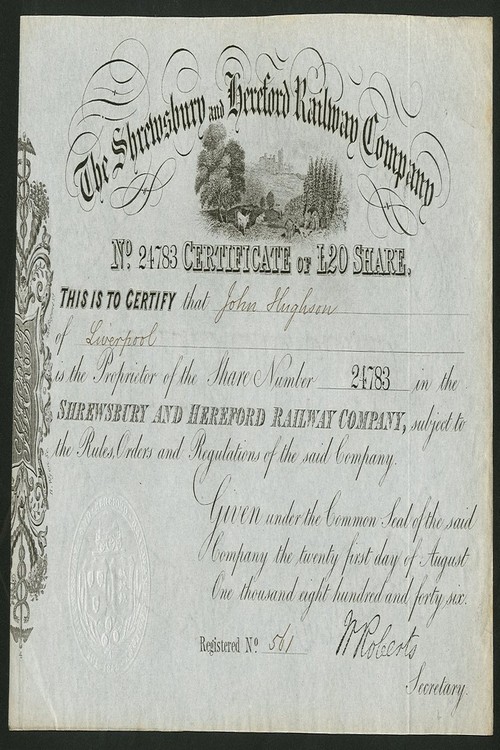 The Shrewsbury and Hereford Railway Company
No. 24783 CERTIFICATE OF L20 SHARE.
THIS IS TO CERTIFY that John Hughson
of Liverpool
is the Proprietor of the Share Number 24783 in the
SHREWSBURY AND HEREFORD RAILWAY COMPANY, subject to
the Rules, Orders and Regulations of the said Company.
Given under the Common Seal of the said
Company the twenty first day of August
One thousand eight hundred and forty six.
Registered No. 561 W Roberts
Secretary.